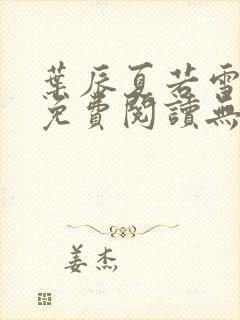 葉辰夏若雪
免費閱讀無
姜杰